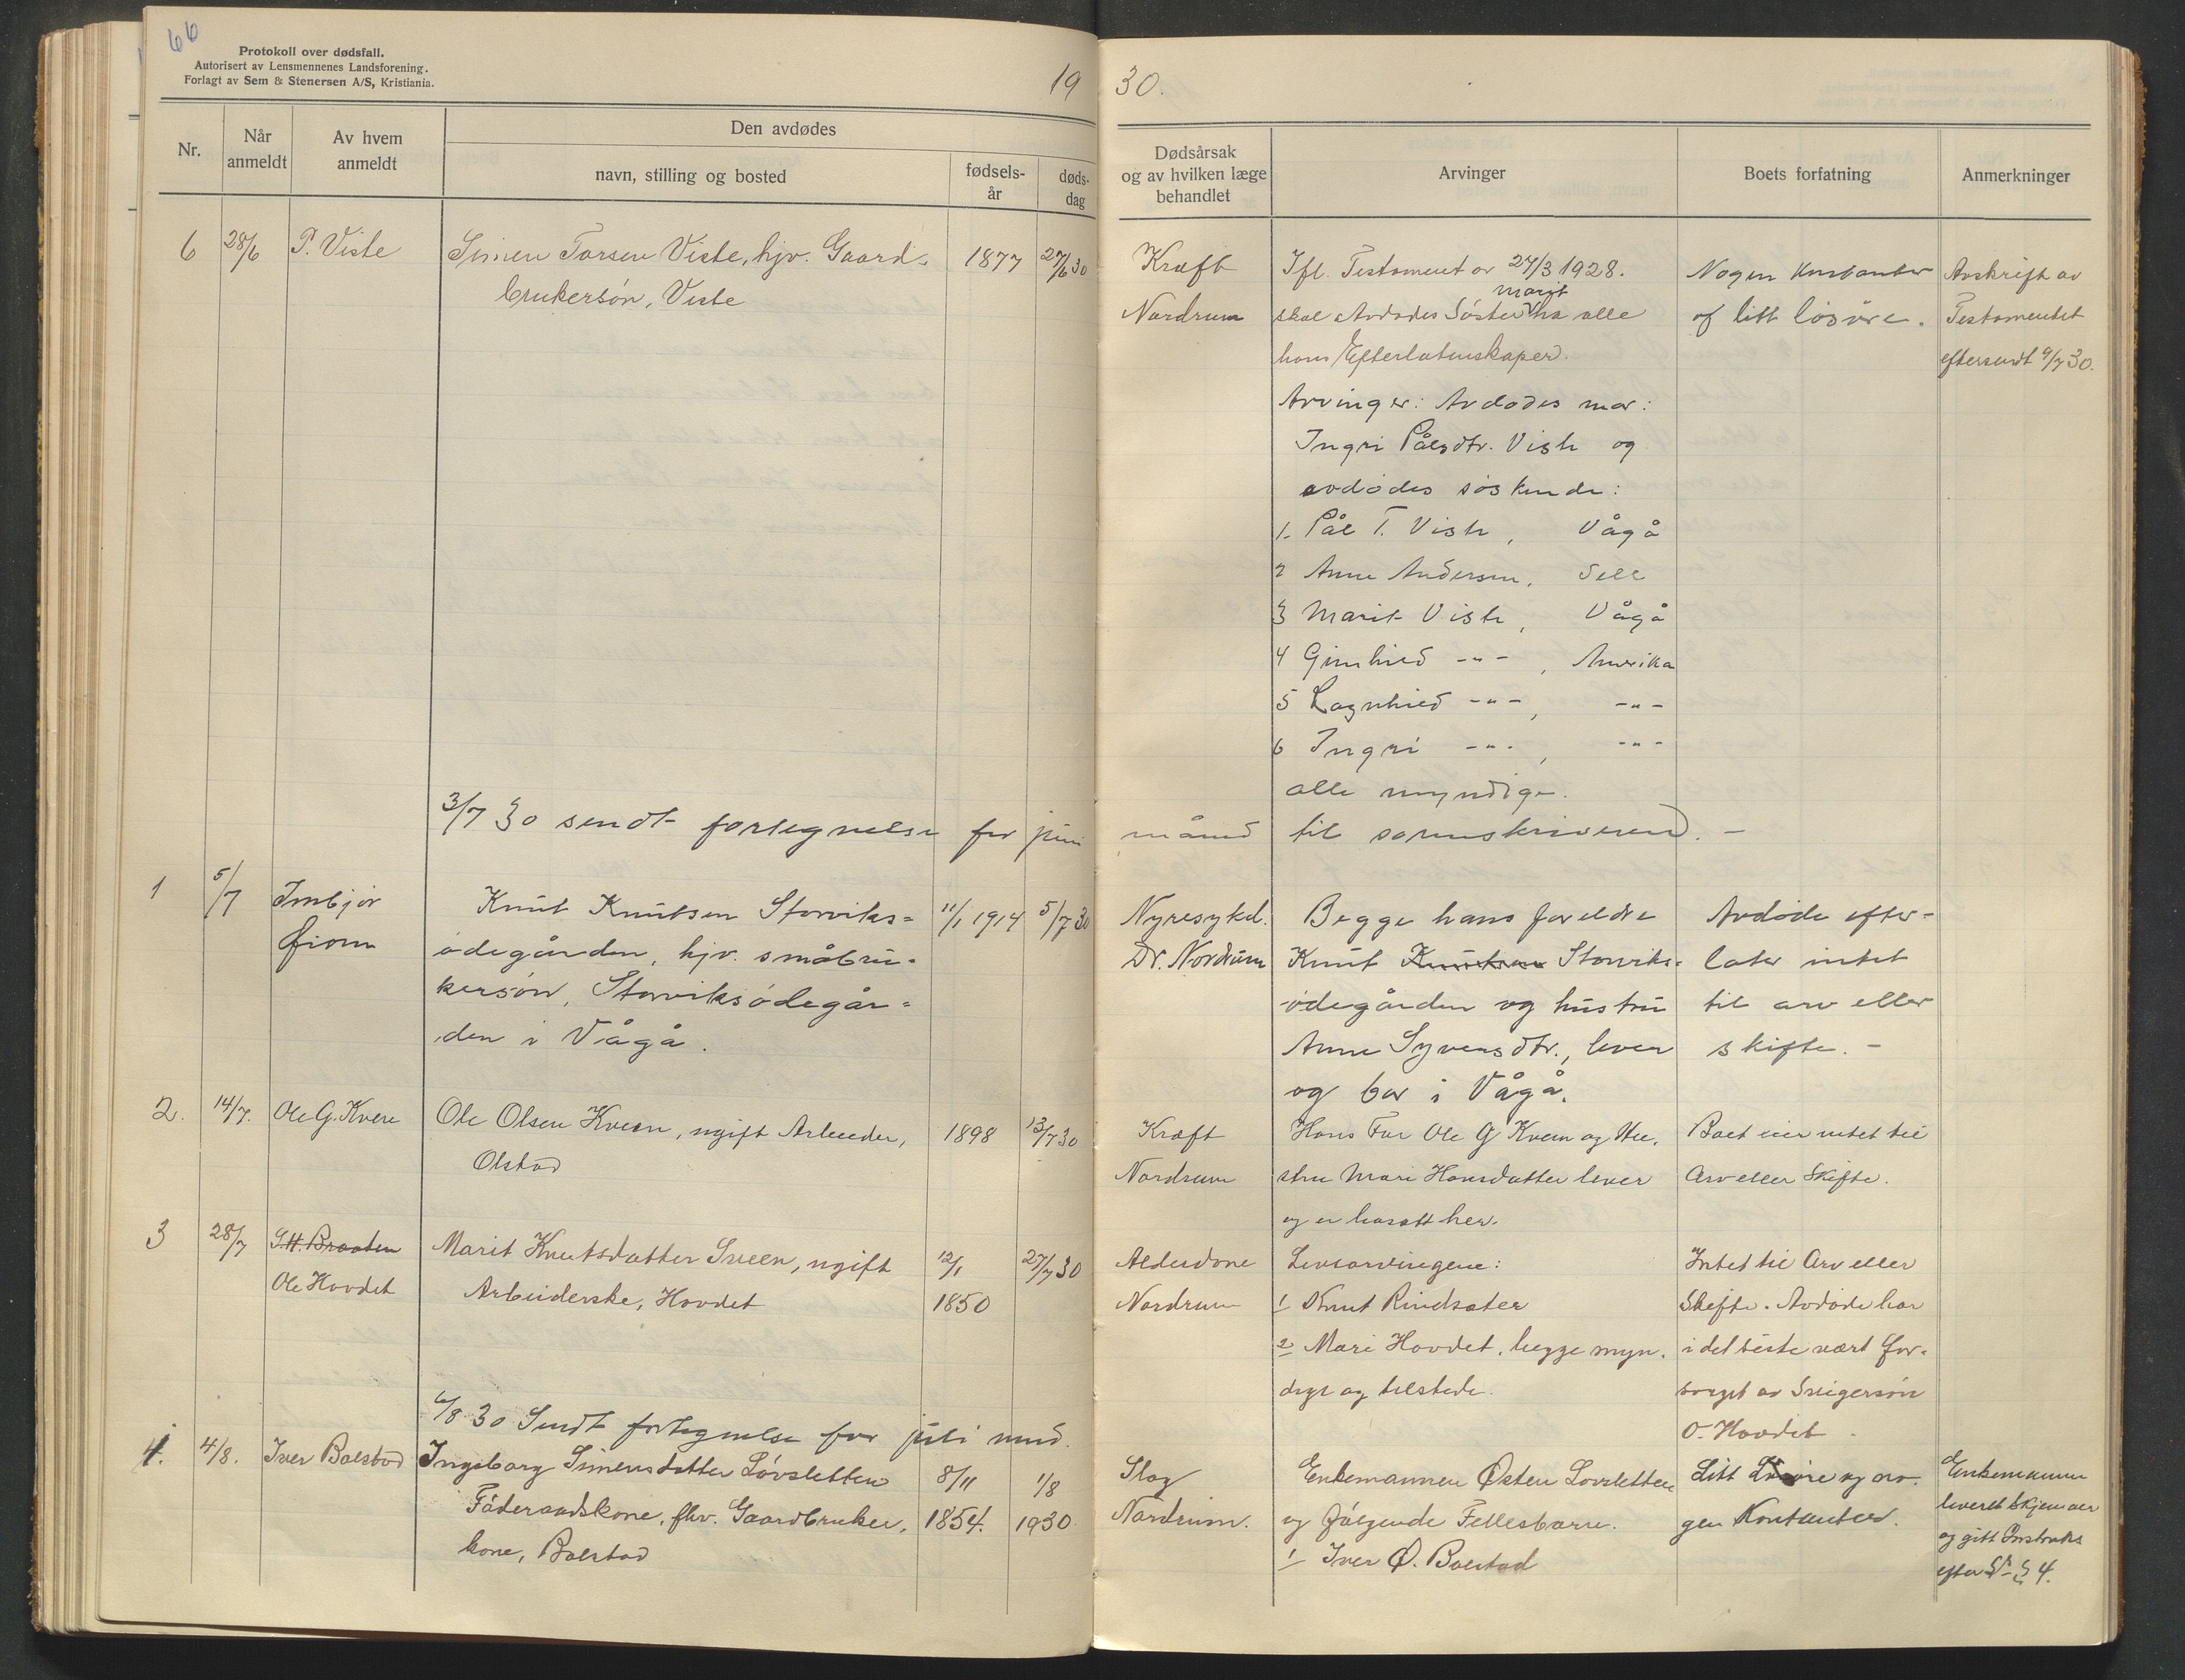 66
Protokoll over dødsfall.
Autorisert av Lensmennenes Landsforening.
Forlagt av Sem & Stenersen A/S, Kristiania.
19
30.
Nr.
Når
anmeldt
Av hvem
anmeldt
Den avdødes
navn, stilling og bosted
fødsels-
år
døds-
dag
Dødsårsak
og av hvilken læge
behandlet
Arvinger
Boets forfatning
Anmerkninger
6
28/6
P. Viste
Simen Torsen Viste, hjv. Gaard-
brukersøn, Viste
1877
27/6 30
Kræft
Nordrum
Ifl. Testament av 27/3 1928.
marit
skal Avdødes Søster ha alle
hans Efterlatenskaper.
Arvinger: Avdødes mor:
Ingri Pålsdtr. Viste og
avdødes søskende:
1. Pål T. Viste, Vågå
2 Anne Andersen, Sell
3 Marit Viste, Vågå
4 Gunhild -"-, Amerika
5 Ragnhild -"-, -"-
6 Ingri -"-, -"-
alle myndige.
Nogen kontanter
og litt løsøre.
Avskrift av
Testamentet
eftersendt 9/7 30.
3/7 30 sendt fortegnelse for juni
måned til sorenskriveren. -
1
5/7
Imbjør
Knut Knutsen Storviks=
ødegården, hjv. småbru=
kersøn, Storviksødegår=
den i Vågå.
11/1 1914
5/7 30
Nyresykd.
Dr. Nordrum
Begge hans foreldre
Knut Knutsen Storviks=
ødegården og hustru
Anne Syversdtr., lever
og bor i Vågå.
Avdøde efter-
later intet
til arv eller
skifte. -
2.
14/7.
Ole G. Kveen
Ole Olsen Kveen, ugift Arbeider,
Olstad
1898
13/7 30
Kræft
Nordrum
Hans Far Ole G Kveen og Hu-
stru Mari Hansdatter lever
og er bosatt her.
Boet eier intet til
Arv eller Skifte.
3
28/7
S.H. Braaten
Ole Hovdet
Marit Knutsdatter Sveen, ugift
Arbeiderske, Hovdet
12/1
1850
27/7 30
Alderdom
Nordrum
Livsarvingene:
1 Knut Rindsæter
2 Mari Hovdet, begge myn-
dige og tilstede.
Intet til Arv eller
Skifte. Avdøde har
i det siste vært for-
sørget av Svigersøn
O. Hovdet.
6/8 30 Sendt fortegnelse for juli mnd.
1.
4/8.
Iver Bolstad
Ingeborg Simensdatter Løvsletten
Føderaadskone, fhv. Gaardbruker-
kone, Bolstad
8/11
1854.
1/8
1930.
Slag
Nordrum.
Enkemannen Østen Lovsletten
og følgende Fellesbarn.
1 Iver Ø. Bolstad
Litt Løsøre og no-
gen Kontanter.
Enkemannen
levert Skjemaer
og gitt Instruks
efter § 4.